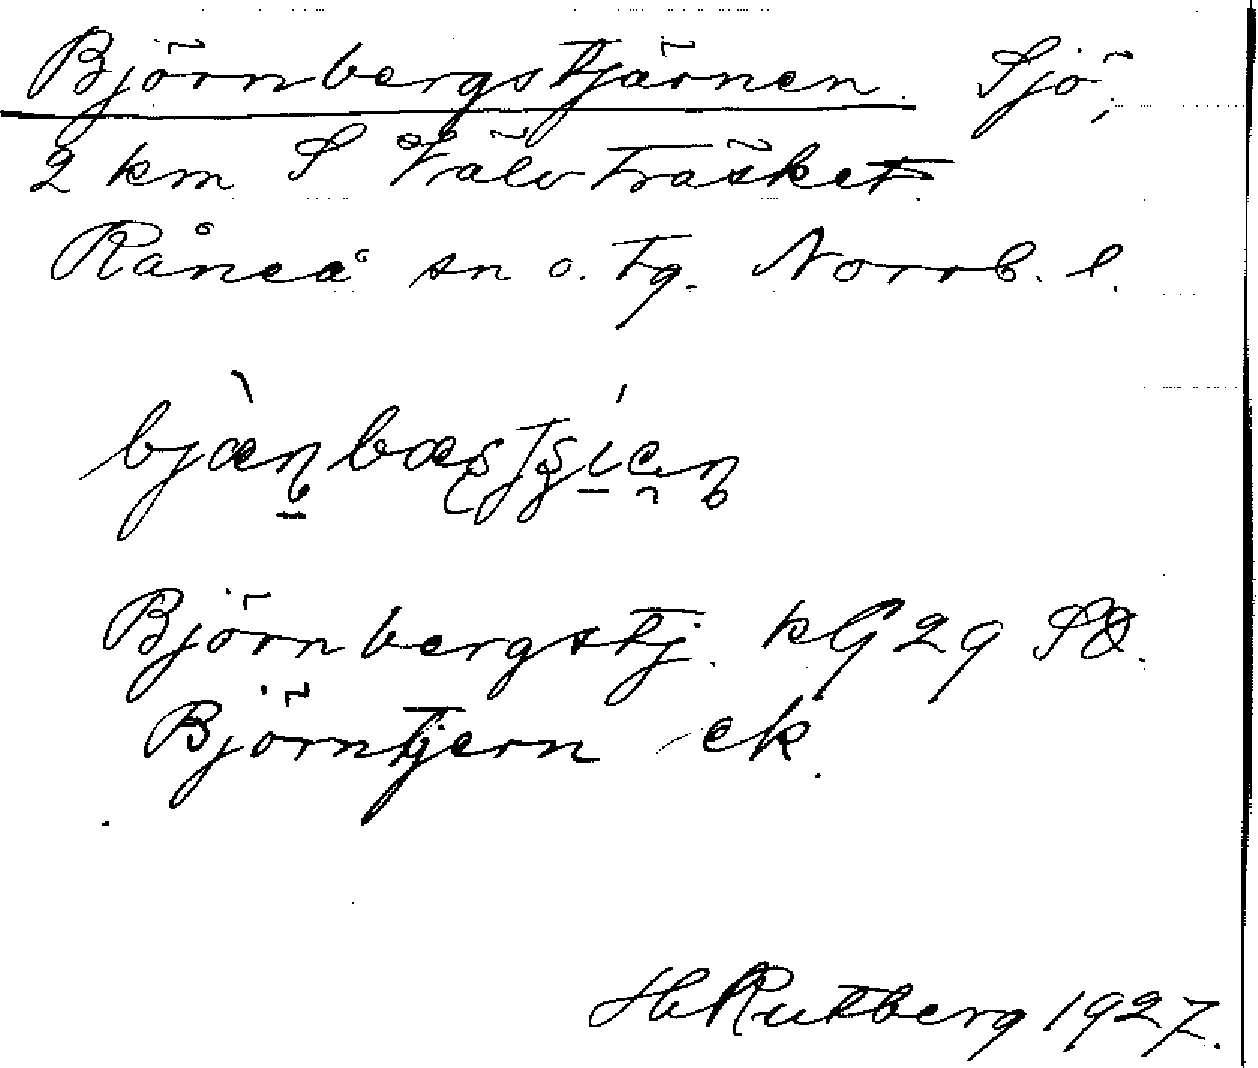 Björnbergstjärnen. Sjö,
2 km S Välvträsket.
Råneå sn o. tg. Norrb. l.
Björnbergstj. kG 29 SO.
Björntjern ek.
H Rutberg 1927.